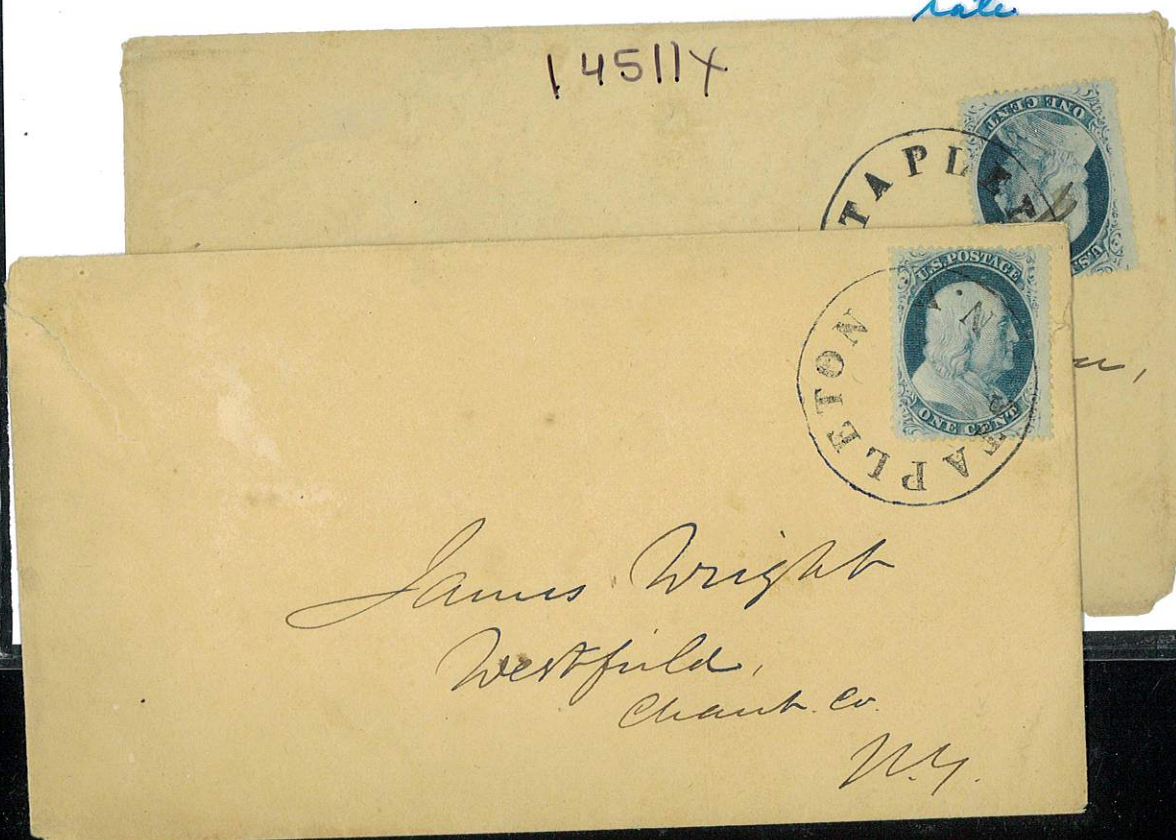 rate
14511X
ONE CENT
U.S.
TAPLET
U.S. POSTAGE
ONE CENT
STAPLETON N.Y.
James Wright
Westfield,
Chaut. Co.
N.Y.